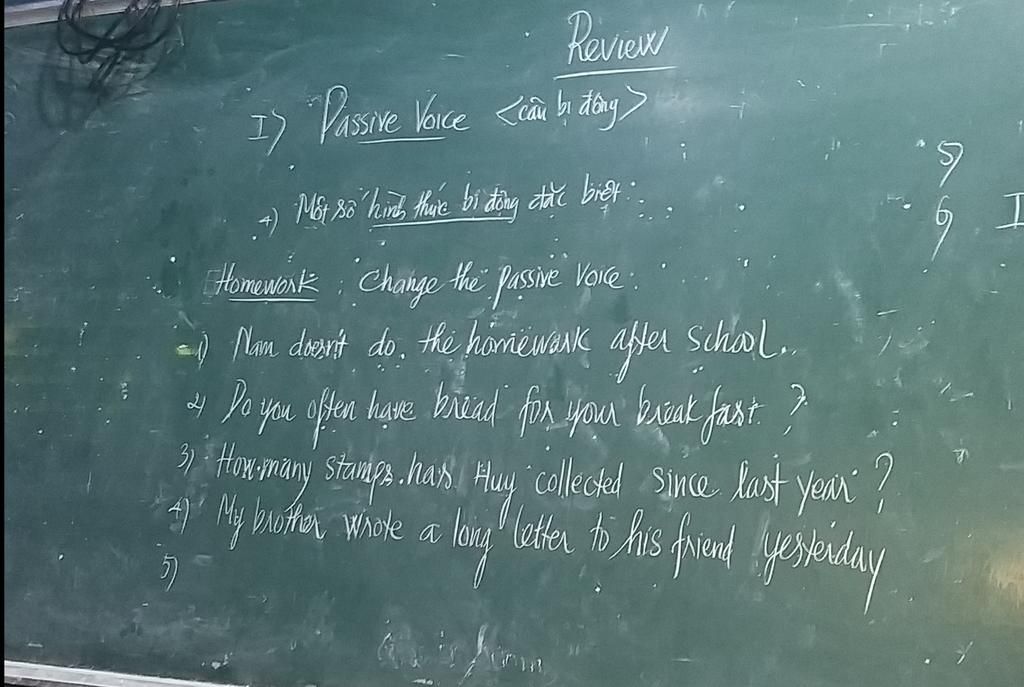 Review
I) Passive Voice <câu bị động>
4) Một số hình thức bị động đặc biệt:
Homework: Change the passive voice:
1) Nam doesn't do the homework after school.
2) Do you often have bread for your breakfast?
3) How many stamps has Huy collected since last year?
4) My brother wrote a long letter to his friend yesterday
5)
5)
6)
I